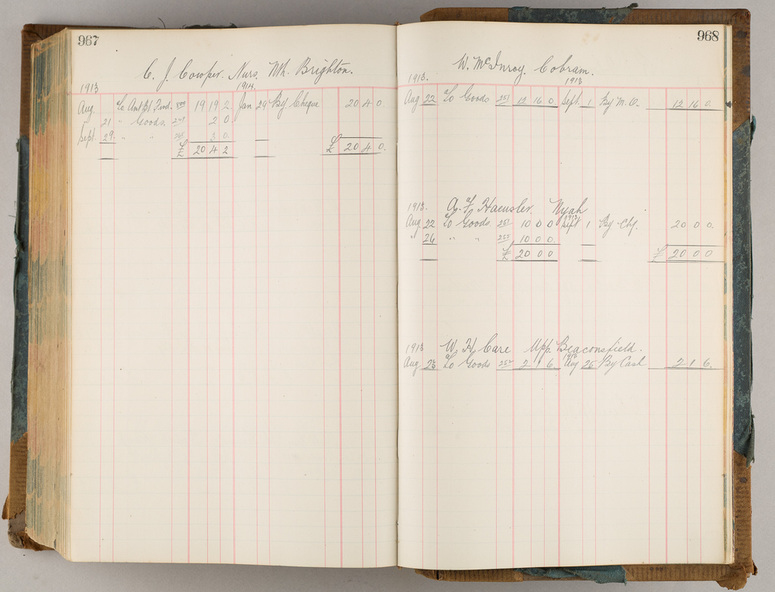 967
C. J. Cowper. Nurs. Mt. Brighton.
1913 1914
Aug To Act Bt Fwd. 19 19 2 Jan 29 By Cheque 20 4 0
21 " Goods 2 0
Sept 29 " " 3 0
£ 20 4 2 £ 20 4 0
968
W. McInroy. Cobram.
1913. 1913
Aug 22 To Goods 251 12 16 0 Sept 1 By M.O. 12 16 0
1913. A. F. Haensler Nyah
1913
Aug 22 To Goods 251 10 0 0 Sept 1 By Chq. 20 0 0
" 26 " " 253 10 0 0
£ 20 0 0 £ 20 0 0
1913 W. H. Care Upp. Beaconsfield.
Aug 26 To Goods 252 2 1 6 Aug 26 By Cash 2 1 6